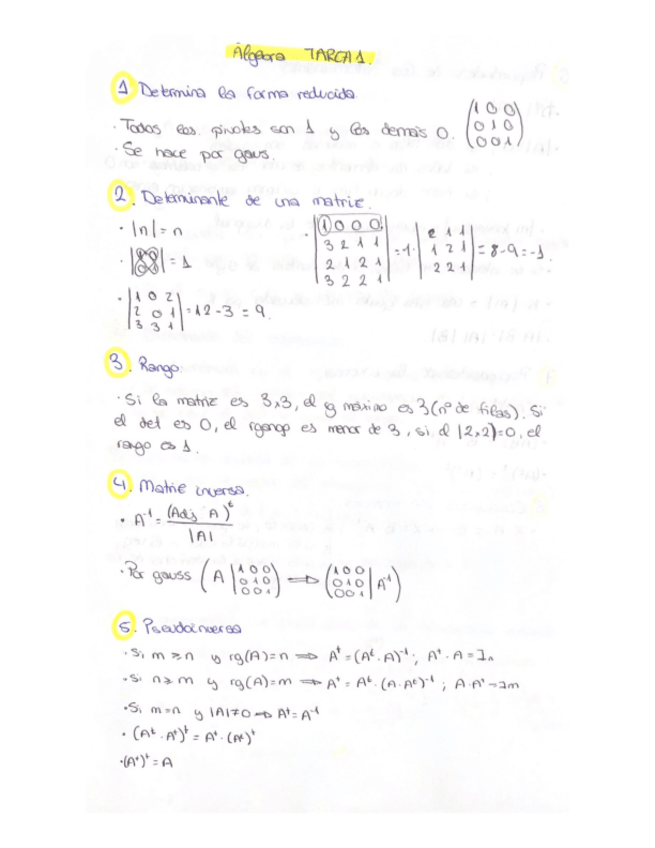 Álgebra TAREA 1.
1 Determina la forma reducida
· Todos los pivotes son 1 y los demais 0. (1 0 0
0 1 0
0 0 1)
· Se hace por gaus.
2. Determinante de una matriz.
· |n| = n
· | | = 1
· |1 0 2
2 0 1
3 3 1| = 12 - 3 = 9.
· |1 0 0 0
3 2 1 1
2 1 2 1
3 2 2 1| = 1· |2 1 1
1 2 1
2 2 1| = 8-9 = -1.
3. Rango.
· Si la matriz es 3x3, el rg máximo es 3 (nº de filas). Si
el det es 0, el rgango es menor de 3, si el |2x2| = 0, el
rango es 1.
4. Matriz inversa.
· A⁻¹ = (Adj A)ᵗ / |A|
· Por gauss (A | 1 0 0
0 1 0
0 0 1) ⟹ (1 0 0
0 1 0
0 0 1 | A⁻¹)
5. Pseudoinversa
· Si m ≥ n y rg(A) = n ⟹ A⁺ = (Aᵗ · A)⁻¹ ; A⁺ · A = In
· Si n ≥ m y rg(A) = m ⟹ A⁺ = Aᵗ · (A · Aᵗ)⁻¹ ; A · A⁺ = Im
· Si m = n y |A| ≠ 0 ⟹ A⁺ = A⁻¹
· (Aᵗ · A⁺)ᵗ = A⁺ · (Aᵗ)⁺
· (A⁺)⁺ = A